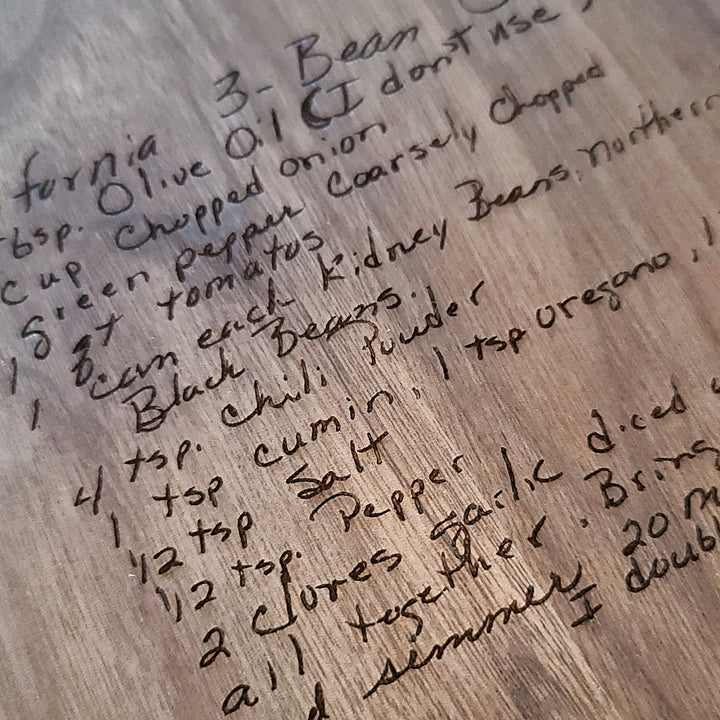 3- Bean
fornia
bsp. Olive Oil (I don't use
cup Chopped onion
Green pepper Coarsely Chopped
1 8 qt tomatos
1 can each kidney Beans, northern
Black Beans.
4 tsp. chili Powder
1 tsp cumin, 1 tsp oregano, 1
1/2 tsp Salt
1/2 tsp. Pepper
2 cloves garlic diced
all together. Bring
d semmer 20 m
I doubl